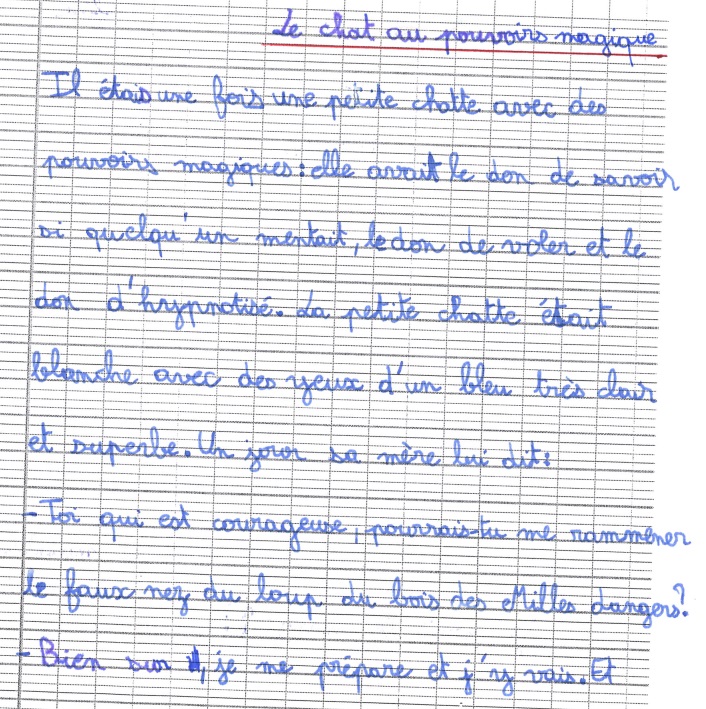 Le chat au pouvoirs magique
Il étais une fois une petite chatte avec des
pouvoirs magiques : elle avait le don de savoir
si quelqu'un mentait, le don de voler et le
don d'hypnotisé. La petite chatte était
blanche avec des yeux d'un bleu très clair
et superbe. Un jour sa mère lui dit :
- Toi qui est courageuse, pourrais-tu me rammener
le faux nez du loup du bois des Milles dangers?
- Bien sur, je me prépare et j'y vais. Et